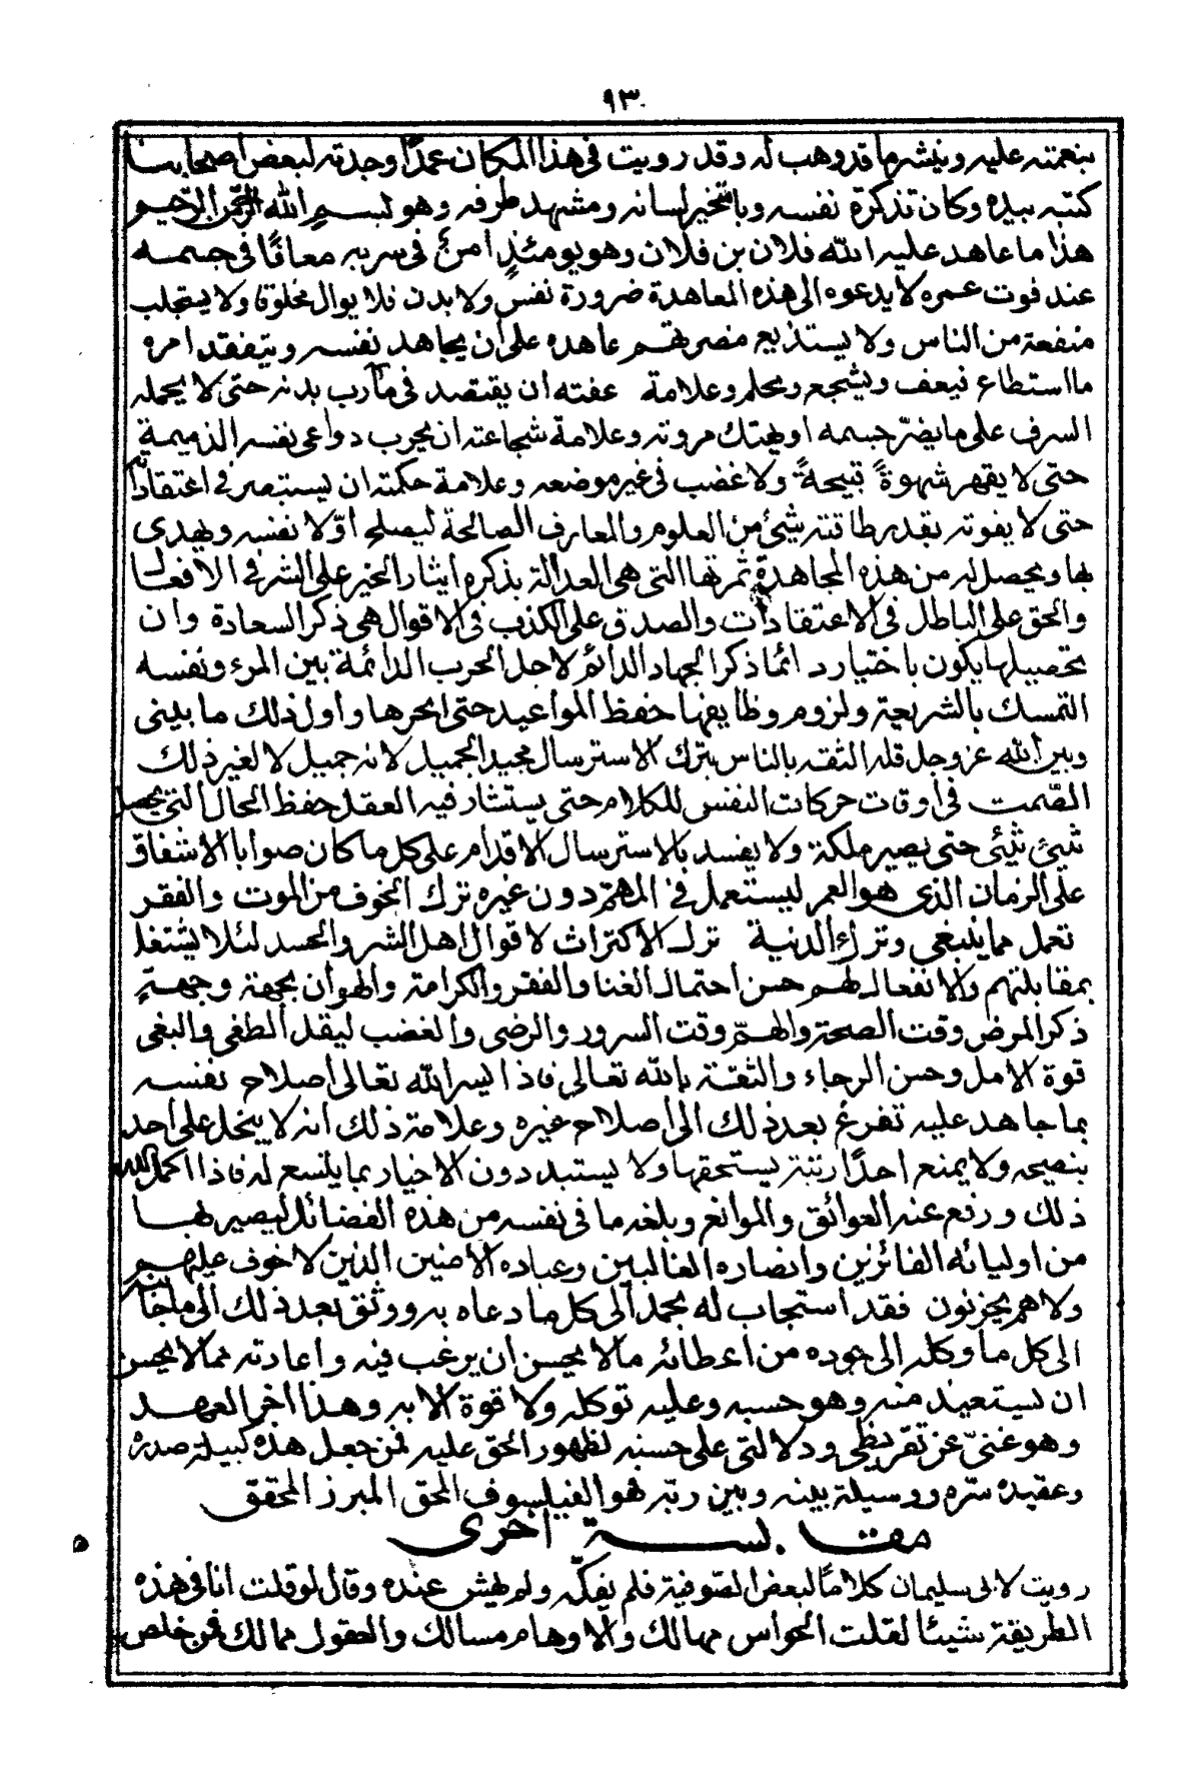 ٩٣
بنعمته عليه وينشر ما قد وهب له وقد رويت في هذا المكان عمدًا وجدته لبعض اصحابنا
كتبه بيده وكان تذكرة نفسه لسانه ومشهد طرفه وهو بسم الله الرحمن الرحيم
هذا ما عاهد عليه الله فلان بن فلان وهو يومئذٍ امن في سربه معافًا في جسمه
عند فوت عمره لا يدعوه الى هذه المعاهدة ضرورة نفس ولا بدن فلا يوال مخلوقا ولا يستجلب
منفعة من الناس ولا يستذيع مضرتهم عاهده على أن يجاهد نفسه ويتفقد امره
ما استطاع فيعف ويشجع ويحلم وعلامة عفته ان يقتصد في مآرب بدنه حتى لا يحمله
السرف على ما يضرّ جسمه او يهتك مروته وعلامة شجاعته ان يحرب دواعى نفسه الذميمة
حتى لا يقهر شهوةً قبيحةً ولا غضب في غير موضعه وعلامة حكمته ان يستبصر في اعتقاداته
حتى لا يفوته بقدر طاقته شيئ من العلوم والمعارف الصالحة ليصلح اوّلا نفسه ويهدى
بها ويحصل له من هذه المجاهدة ثمرتها التى هي العدالة بذكره ايثار الخير على الشر في الافعال
والحق على الباطل في الاعتقادات والصدق على الكذب في الاقوال هي ذكر السعادة وان
تحصيلها يكون باختيار دائما ذكر الجهاد الدائم لاجل الحرب الدائمة بين المرء ونفسه
التمسك بالشريعة ولزوم وظايفها حفظ المواعيد حتى انجرها واول ذلك ما بينى
وبين الله عز وجل قلة الثقة بالناس بترك الاسترسال مجيد الجميل لانه جميل لا لغير ذلك
الصّمت في اوقات حركات النفس للكلام حتى يستشار فيه العقل حفظ الحال التى يحصل
شيئ شيئى حتى يصير ملكة ولا يفسد بالاسترسال الاقدام على كل ما كان صوابا الاشفاق
على الزمان الذى هو العمر ليستعمل في المهمّ دون غيره ترك الخوف من الموت والفقر
تعمل مما ينبغى وترك الدنية ترك الاكتراث لاقوال اهل الشر والحسد لئلا يشتغل
بمقابلتهم والانفعال لهم حسن احتمال الغنا والفقر والكرامة والهوان بجهة وجهةٍ
ذكر المرض وقت الصحة والهمّ وقت السرور والرضى والغضب ليقل الطغى والبغى
قوة الامل وحسن الرجاء والثقة بالله تعالى فاذا يسر الله تعالى اصلاح نفسه
بما جاهد عليه تفرغ بعد ذلك الى اصلاح غيره وعلامة ذلك انه لا يبخل على احد
بنصيحه ولا يمنع احدًا رتبة يستحقها ولا يستبد دون الاخيار بما يتسع له فاذا اكمل الله
ذلك ورفع عنه العوائق والموانع وبلغه ما في نفسه من هذه الفضائل ليصير بها
من اوليائه الفائزين وانصاره الغالبين وعباده الآمنين الذين لا خوف عليهم
ولا هم يحزنون فقد استجاب له بحمد الى كل ما دعاه به ووثق بعد ذلك الى ملجأ
الى كل ما وكله الى جوده من اعطائه ما لا يحسن ان يرغب فيه واعادته مما لا يحسن
ان يستعيذ منه وهو حسبه وعليه توكله ولا قوة الا به وهذا اخر العهد
وهو غنىّ عن تقريظى ودلالتى على حسنه لظهور الحق عليه فمن جعل هذه كبيلة صدره
وعقيده سّره ووسيلة بينه وبين ربّه فهو الفيلسوف المحق المبرز المحقق
مقابسة اخرى
رويت لابى سليمان كلامًا لبعض الصّوفية فلم يفكّه ولم يهش عنده وقال لو قلت انا في هذه
الطريقة شيئا لقلت الحواس مهالك والاوهام مسالك والعقول ممالك فمن خلص